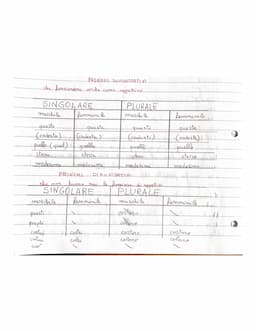 PRONOMI DIMOSTRATIVI
che funzionano anche come aggettivi
SINGOLARE PLURALE
maschile femminile maschile femminile
questo questa questi queste
(codesto) (codesta) (codesti) (codeste)
quello (quel) quella quelli quelle
stesso stessa stessi stesse
medesimo medesima medesimi medesime
PRONOMI DIMOSTRATIVI
che non hanno mai la funzione di aggettivi
SINGOLARE PLURALE
maschile femminile maschile femminile
questi
quegli
costui costei costoro costoro
colui colei coloro coloro
ciò